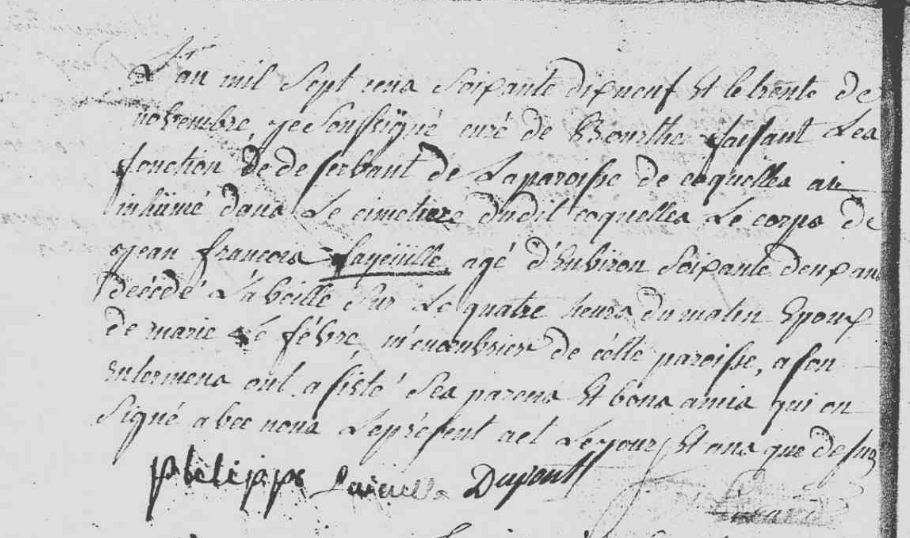 L'an mil sept cens soixante dixneuf et le trente de
novembre je soussigné curé de faisant les
fonction de deserbant de la paroisse de coquelles ai
inhumé dans le cimetiere dudit coquelles le corps de
jean francois Layeuille agé d'environ soixante deux an
décédé la beille sur le quatre heurs du matin Epoux
de marie Le fébvre de cette paroisse, a son
enlermens ont asisté ses parens et bons amis qui on
signé avec nous le present act le jour et ans que dessus
philippe Dupont